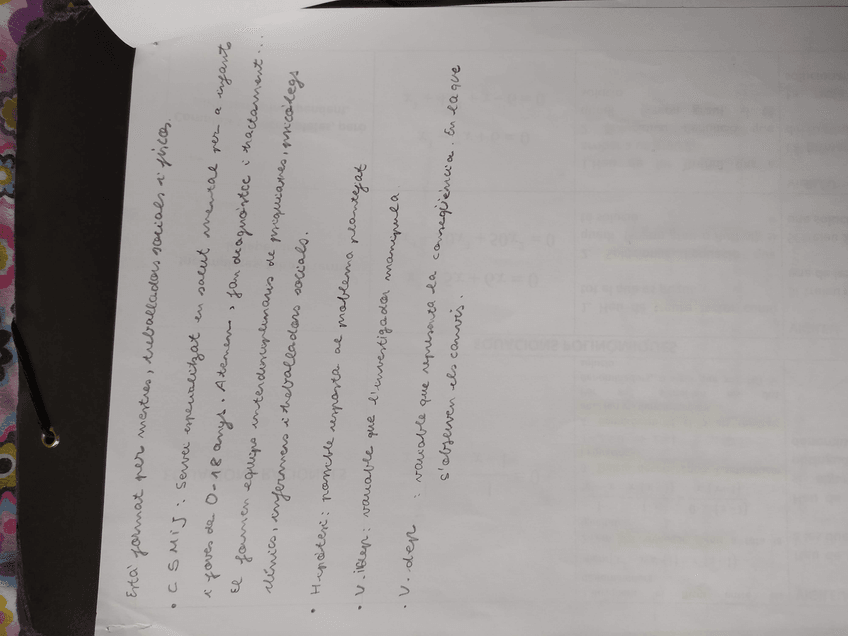 Està format per mestres, treballadors socials i físics.
• CSMIJ: Servei especialitzat en salut mental per a infants
i joves de 0-18 anys. Atenen, fan diagnòstic i tractament...
El formen equips interdisciplinaris de psiquiatres, psicòlegs
clínics, infermers i treballadors socials.
• Hipòtesi: possible resposta al problema plantejat
• V. idep: variable que l'investigador manipula.
• V. dep : variable que representa la conseqüència. En la que
s'observen els canvis.